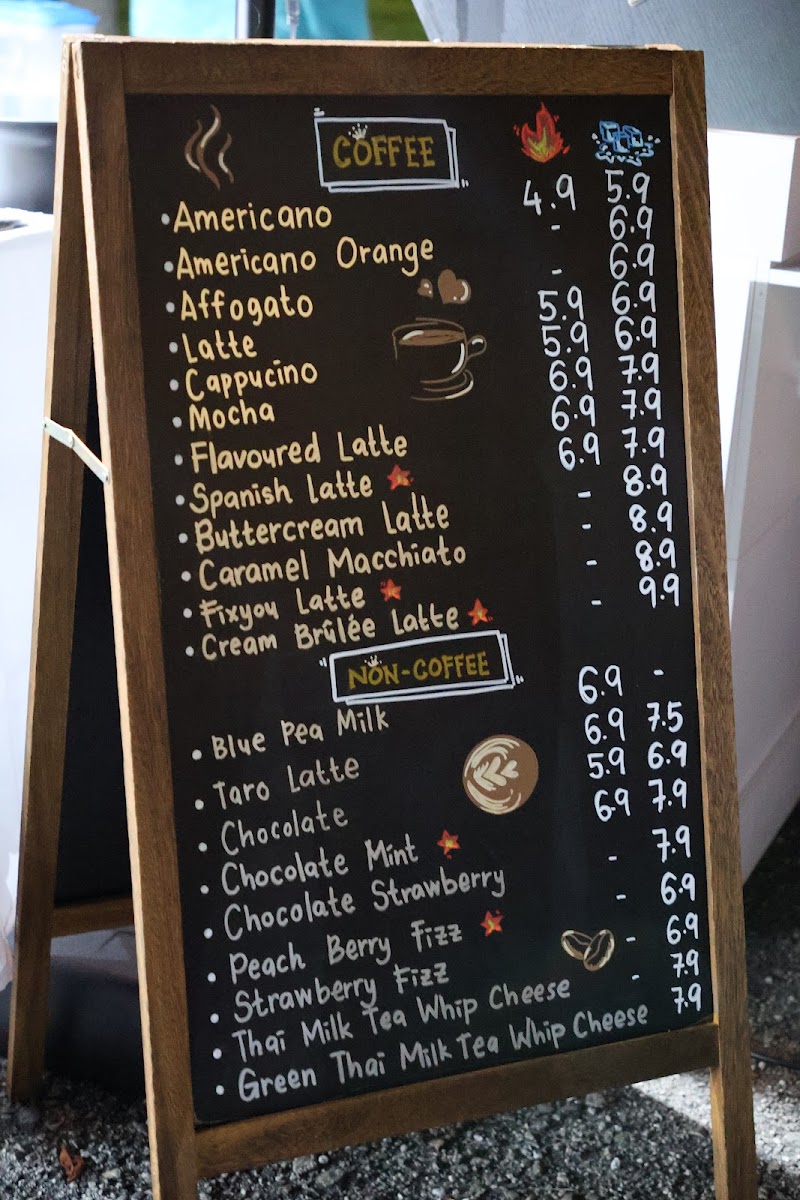 COFFEE
• Americano 4.9 5.9
• Americano Orange - 6.9
• Affogato - 6.9
• Latte 5.9 6.9
• Cappucino 5.9 6.9
• Mocha 6.9 7.9
• Flavoured Latte 6.9 7.9
• Spanish Latte 6.9 7.9
• Buttercream Latte - 8.9
• Caramel Macchiato - 8.9
• Fixyou Latte - 8.9
• Cream Brûlée Latte - 9.9
NON-COFFEE
• Blue Pea Milk 6.9 -
• Taro Latte 6.9 7.5
• Chocolate 5.9 6.9
• Chocolate Mint 6.9 7.9
• Chocolate Strawberry - 7.9
• Peach Berry Fizz - 6.9
• Strawberry Fizz - 6.9
• Thai Milk Tea Whip Cheese - 7.9
• Green Thai Milk Tea Whip Cheese 7.9